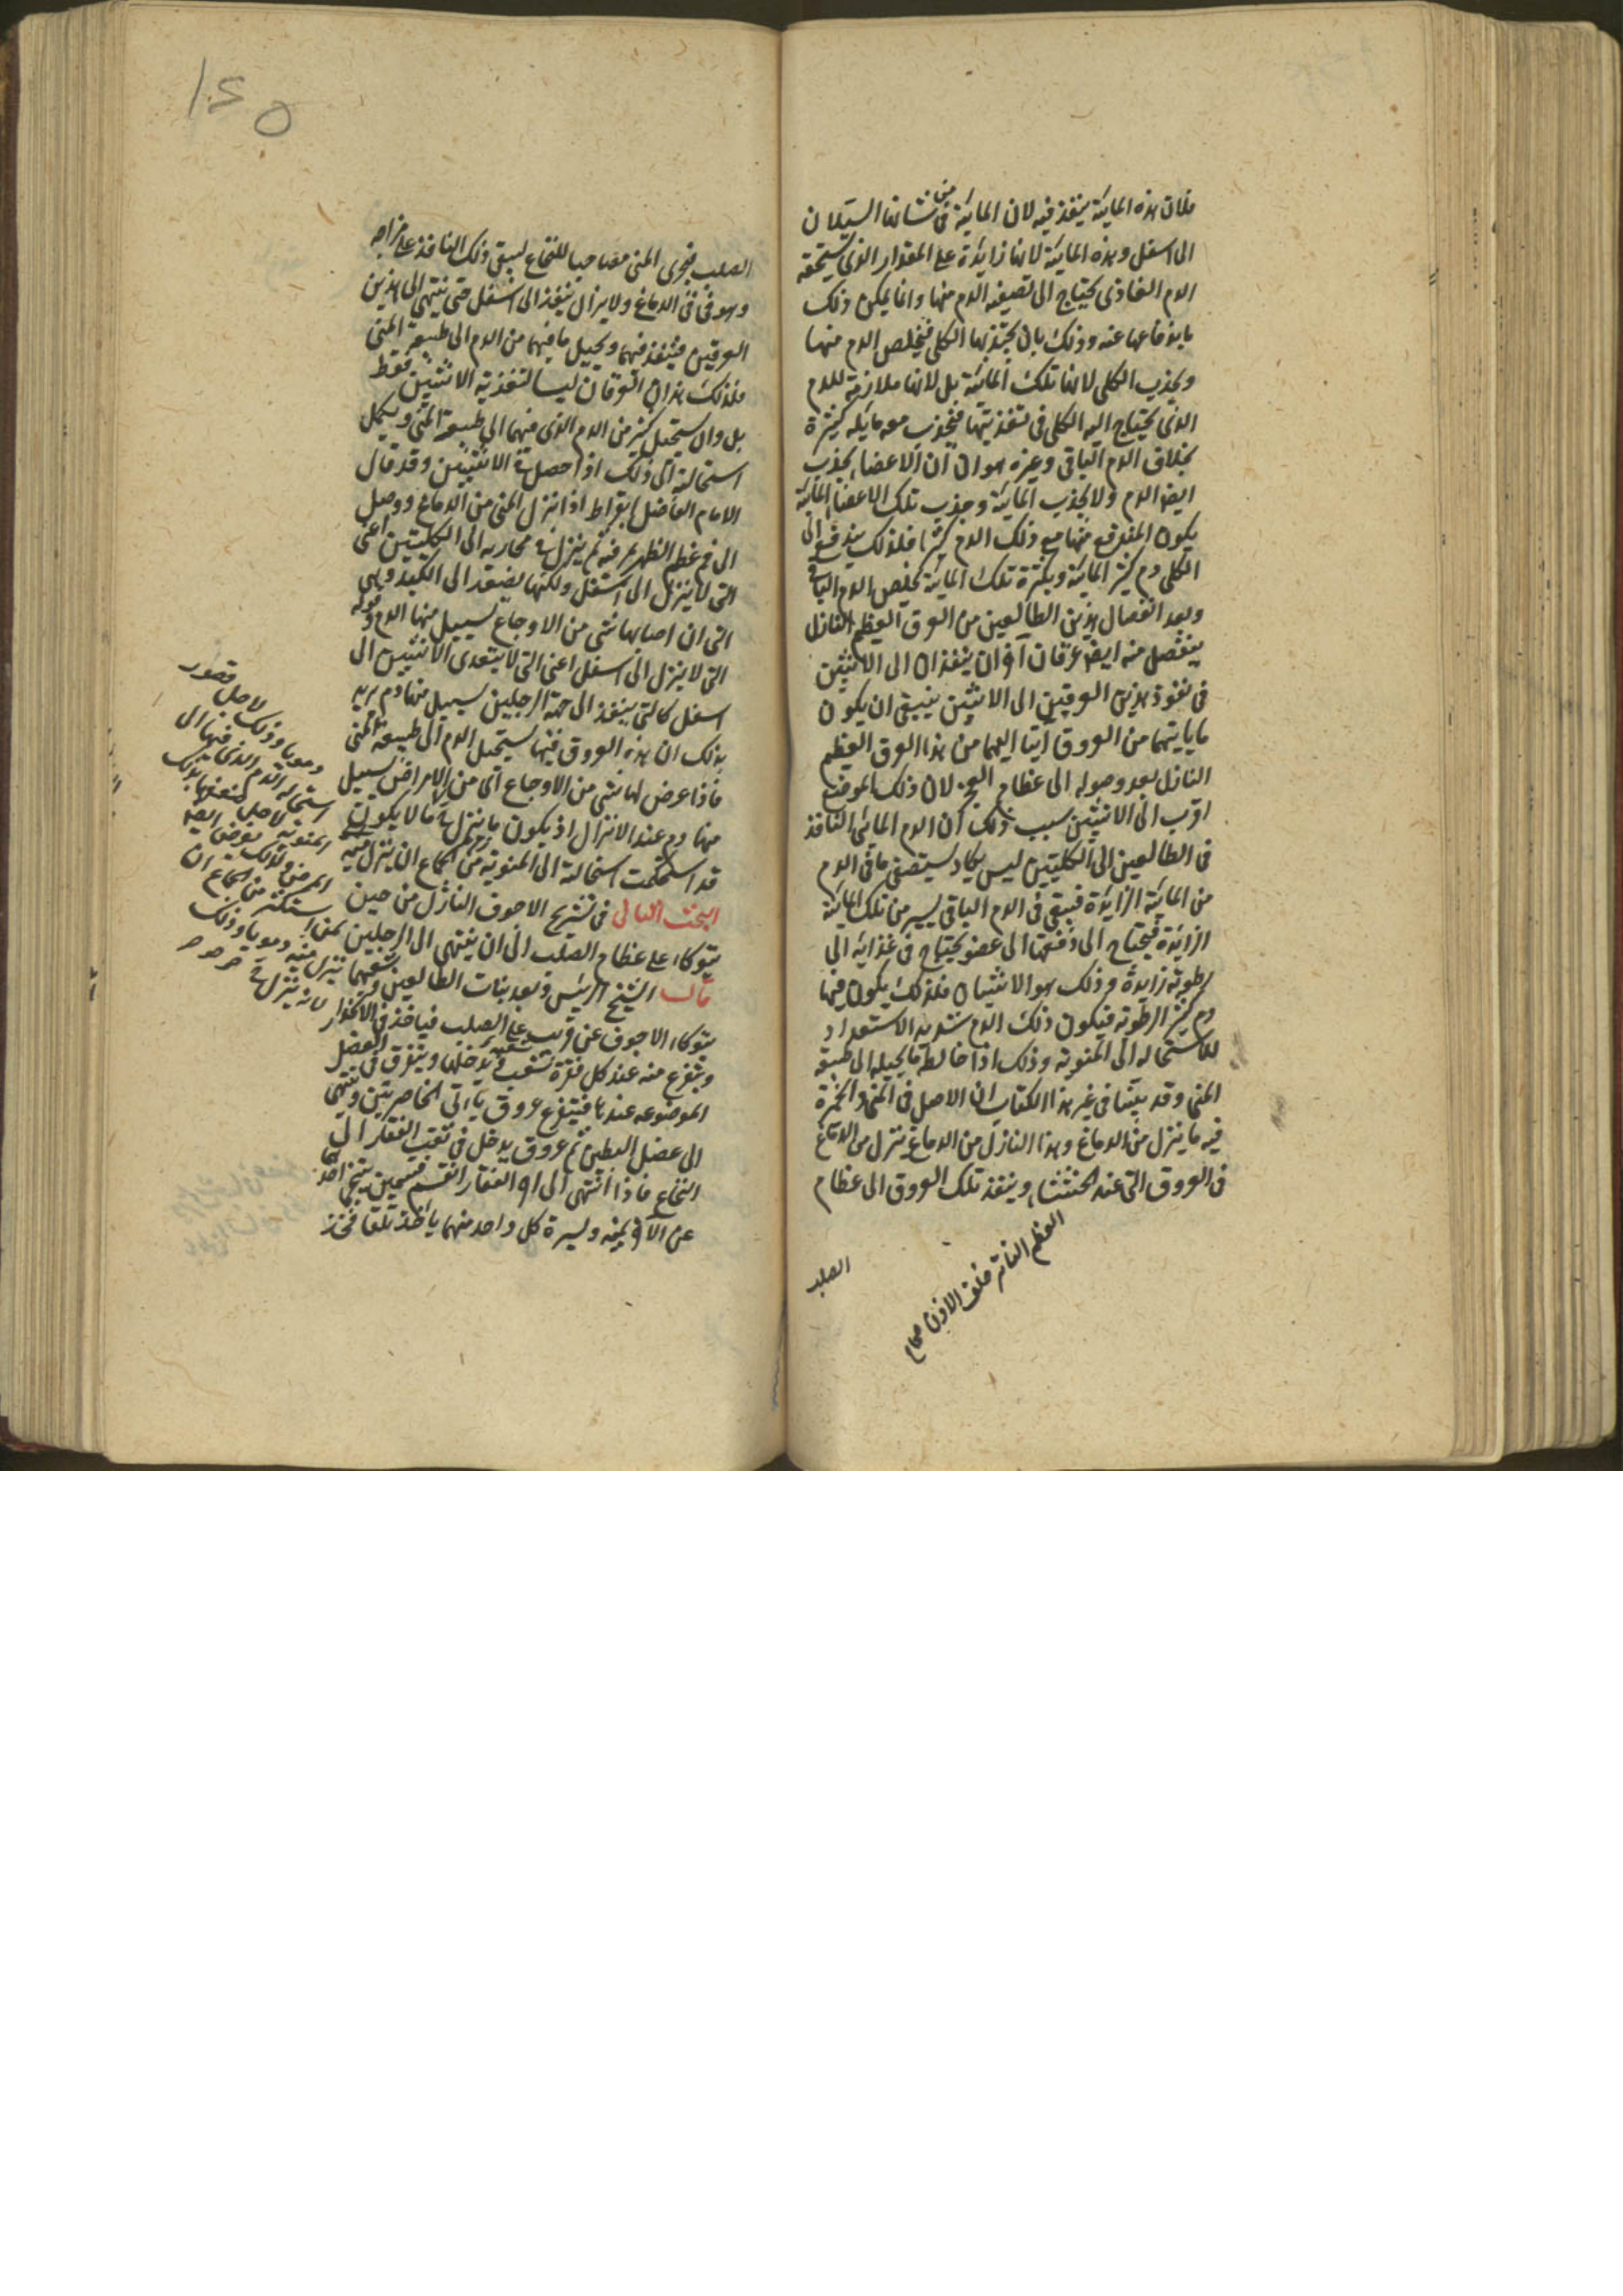 فلان هذه المائية ينفذ فيه لان المائية فى من شانها السيلان
الى اسفل وهذه المائية لانها زايدة على المقدار الذى يستحقه
الدم الغاذى يحتاج الى تصفية الدم منها وانما يمكن ذلك
باندفاعها عنه وذلك بان يجتذبها الكلى فيخلص الدم منها
ويجذب الكلى لا لانها تلك المائية بل لانها ملازمة للدم
الذى يحتاج اليه الكلى فى تغذيتها فينجذب معه مائية كثيرة
بخلاف الدم الباقى وغيره هو ان الاعضاء يجذب
ايضا الدم ولا يجذب المائية وجذب تلك الاعضاء المائية
يكون المندفع منها مع ذلك الدم كثيرا فلذلك يندفع الى
الكلى دم كثير المائية وبكثرة تلك المائية يخلص الدم الباقى
وبعد انفصال هذين الطالعين من العرق العظيم النازل
ينفصل منه ايضا عرقان آخران ينفذان الى الانثيين
فى نفوذ هذين العرقين الى الانثيين ينبغى ان يكون
ما ياتيهما من العروق اتيا اليهما من هذا العرق العظيم
النازل بعد وصوله الى عظام العجز لان ذلك الموضع
اقرب الى الانثيين سبب ذلك ان الدم المائى النافذ
فى الطالعين الى الكليتين ليس يكاد يستصفى ما فى الدم
من المائية الزايدة فيبقى فى الدم الباقى يسير من تلك المائية
الزايدة فيحتاج الى دفعها الى عضو يحتاج فى غذايه الى
رطوبة زايدة وذلك هو الانثيان فلذلك يكون فيها
دم كثير الرطوبة فيكون ذلك الدم شديد الاستعداد
للاستحالة الى المنوية وذلك اذا خالطه ما يحيله الى طبيعة
المنى وقد بينا فى غير هذا الكتاب ان الاصل فى المنى والخميرة
فيه ما ينزل من الدماغ وهذا النازل من الدماغ ينزل من الدماغ
فى العروق التى عند الخششاء وينفذ تلك العروق الى عظام
العظم الناتى خلف الاذن صحاح
الصلب
١٤٥
الصلب فيجرى المنى مصاحبا للنخاع ليبقى ذلك النافذ على مزاجه
وهو فى الدماغ ولا يزال ينفذ الى اسفل حتى ينتهى الى هذين
العرقين فينفذ فيهما ويحيل ما فيهما من الدم الى طبيعة المنى
فلذلك هذان العرقان ليسا لتغذية الانثيين فقط
بل وان يستحيل كثير من الدم الذى فيهما الى طبيعة المنى ويكمل
استحالته الى ذلك اذا حصل فى الانثيين وقد قال
الامام الفاضل ابقراط اذا نزل المنى من الدماغ ووصل
الى مخ عظم الظهر مر فيه ثم ينزل فى مجاريه الى الكليتين اعنى
التى لا ينزل الى اسفل ولكنها يصعد الى الكبد وهى
التى ان اصابها شى من الاوجاع سيسيل منها الدم وقوله
التى لا ينزل الى اسفل اعنى التى لا يتعدى الانثيين الى
اسفل كالتى ينفذ الى جهة الرجلين سيسيل منها دم يريد
بذلك ان هذه العروق فيها يستحيل الدم الى طبيعة المنى
فاذا عرض لها شى من الاوجاع اى من الامراض يسيل
منها دم عند الانزال اذ يكون ما ينزل فيها لا يكون
قد استحكمت استحالته الى المنوية من الجماع ان ينزل منيه
البحث الثانى فى تشريح الاجوف النازل من حين
يتوكاء على عظام الصلب الى ان ينتهى الى الرجلين
قال الشيخ الرئيس وبعد نبات الطالعين وشعبهما
يتوكاء الاجوف عن قريب على الصلب فياخذ فى الانحدار
ويتفرع منه عند كل فقرة شعب يدخلها ويتفرق فى العضل
الموضوعه عندها فيتفرع عروق ياتى الخاصرتين وينتهى
الى عضل البطن ثم عروق يدخل فى ثقب الفقار الى
النخاع فاذا انتهى الى آخر الفقار انقسم قسمين يتنحى احدهما
عن الآخر يمنه ويسره كل واحد منهما ياخذ تلقا فخذ
دمويا وذلك لاجل قصور
استحالة الدم الذى فيها الى
المنوية لاجل ضعفها بذلك
المرض ولذلك يعرض ايضا
لمن استكثر من الجماع ان
ينزل منيه دمويا وذلك
لانه ينزل